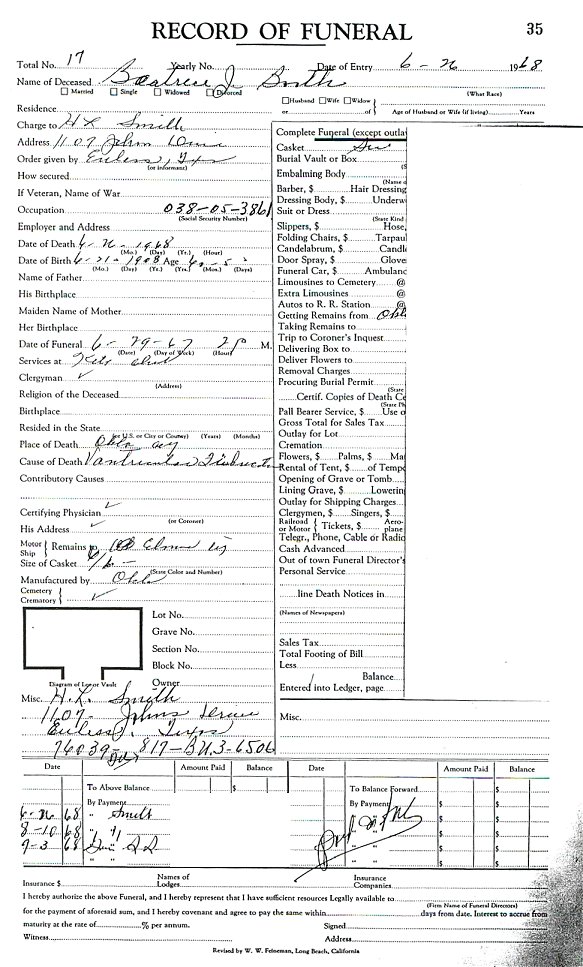 RECORD OF FUNERAL
35
Total No. 17 Yearly No. Date of Entry 6 - 26 1968
Name of Deceased Beatrice J. Booth
Married Single Widowed Divorced
(What Race)
Residence
Husband Wife Widow
or Age of Husband or Wife (if living) Years
Charge to H L Smith
Address 1107 Johns Drive
Order given by Euless, Texs
(or informant)
How secured
If Veteran, Name of War
Occupation 038-05-3861
(Social Security Number)
Employer and Address
Date of Death 6 - 26 - 1968
(Mo.) (Day) (Yr.) (Hour)
Date of Birth 6-21-1908 Age
(Mo.) (Day) (Yr.) (Yrs.) (Mos.) (Days)
Name of Father
His Birthplace
Maiden Name of Mother
Her Birthplace
Date of Funeral 6 - 29 - 67 2 P M.
(Date) (Day of Week) (Hour)
Services at
Clergyman ✓
(Address)
Religion of the Deceased
Birthplace
Resided in the State
(or U.S. or City or County) (Years) (Months)
Place of Death Okla City
Cause of Death
Contributory Causes
Certifying Physician ✓
(or Coroner)
His Address ✓
Motor Ship Remains to
Size of Casket 6/6 -
(State Color and Number)
Manufactured by Okla
Cemetery
Crematory ✓
Complete Funeral (except outla
Casket
Burial Vault or Box
(S
Embalming Body
(Name o
Barber, $ Hair Dressing
Dressing Body, $ Underw
Suit or Dress
(State Kind
Slippers, $ Hose,
Folding Chairs, $ Tarpaul
Candelabrum, $ Candl
Door Spray, $ Glove
Funeral Car, $ Ambulanc
Limousines to Cemetery @
Extra Limousines @
Autos to R. R. Station @
Getting Remains from Okl
Taking Remains to
Trip to Coroner's Inquest
Delivering Box to
Deliver Flowers to
Removal Charges
Procuring Burial Permit
(State
Certif. Copies of Death Ce
(State Ph
Pall Bearer Service, $ Use o
Gross Total for Sales Tax
Outlay for Lot
Cremation
Flowers, $ Palms, $ Mat
Rental of Tent, $ of Tempo
Opening of Grave or Tomb
Lining Grave, $ Lowerin
Outlay for Shipping Charges
Clergymen, $ Singers, $
Railroad or Motor Tickets, $ Aero-plane
Telegr., Phone, Cable or Radio
Cash Advanced
Out of town Funeral Director's
Personal Service
line Death Notices in
(Names of Newspapers)
Sales Tax
Total Footing of Bill
Less
Balance
Entered into Ledger, page
Lot No.
Grave No.
Section No.
Block No.
Diagram of Lot or Vault
Owner
Misc. H.L. Smith
1107 - Johns Drive
Euless, Texs
76039- 817-BU.3-6506
Misc.
Date Amount Paid Balance Date Amount Paid Balance
To Above Balance $ To Balance Forward $
By Payment By Payment $ $
6-26 68 " Smith $ $
8-10 68 " " $ $
9-3 68 $ $
" " " " $ $
Insurance $ Names of Lodges Insurance Companies
I hereby authorize the above Funeral, and I hereby represent that I have sufficient resources Legally available to
(Firm Name of Funeral Directors)
for the payment of aforesaid sum, and I hereby covenant and agree to pay the same within days from date. Interest to accrue from
maturity at the rate of % per annum. Signed
Witness Address
Revised by W. W. Feineman, Long Beach, California